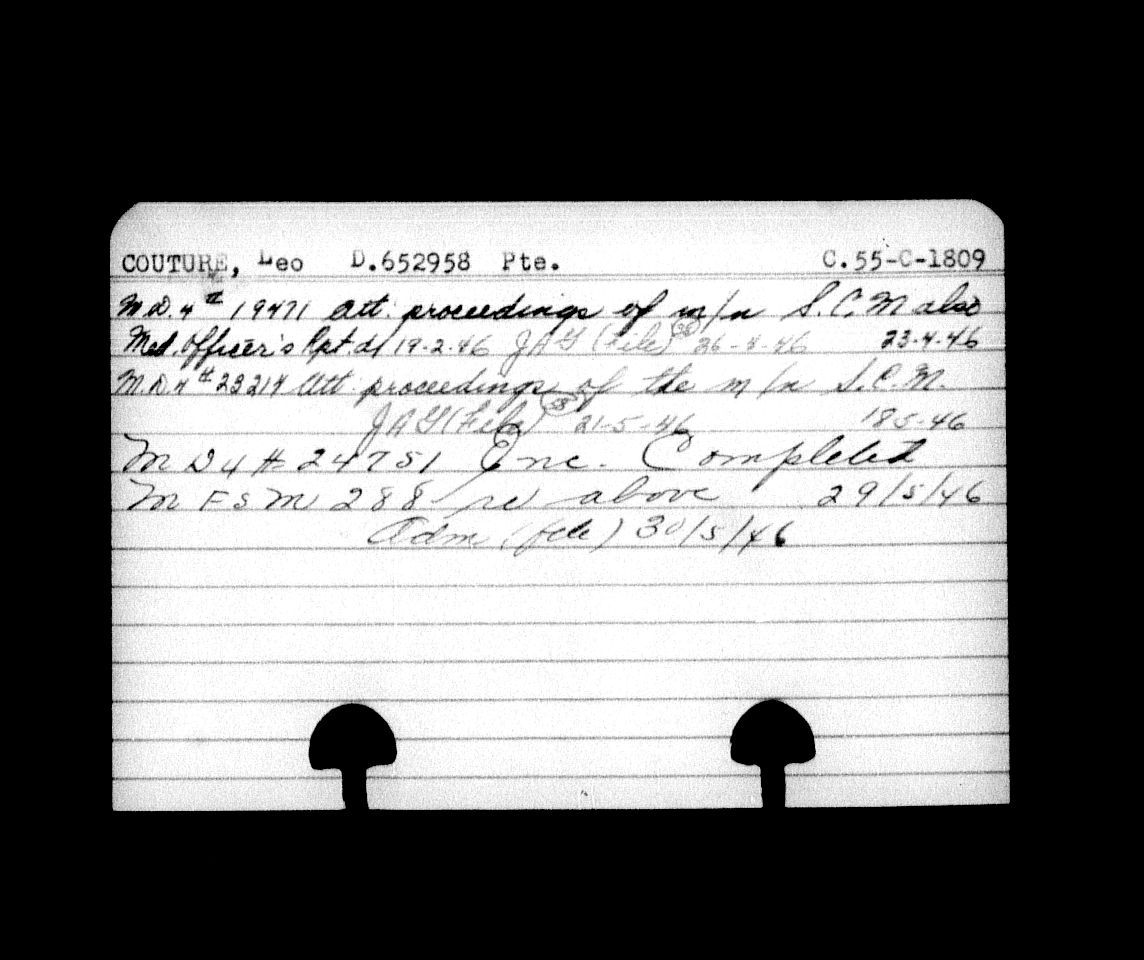 COUTURE, Leo D.652958 Pte. C.55-C-1809
M.D. 4 # 19471 Att: proceedings of m/n S.C.M also
Med. Officer's Rpt. d/ 19-2-46 JAG (File) 58 26-4-46 23-4-46
M.D. 4 # 23214 Att: proceedings of the m/n S.C.M.
JAG (File) 58 21-5-46 18-5-46
M D 4 # 24751 Enc. Completed
M F S M 288 re above 29/5/46
Adm (file) 30/5/46